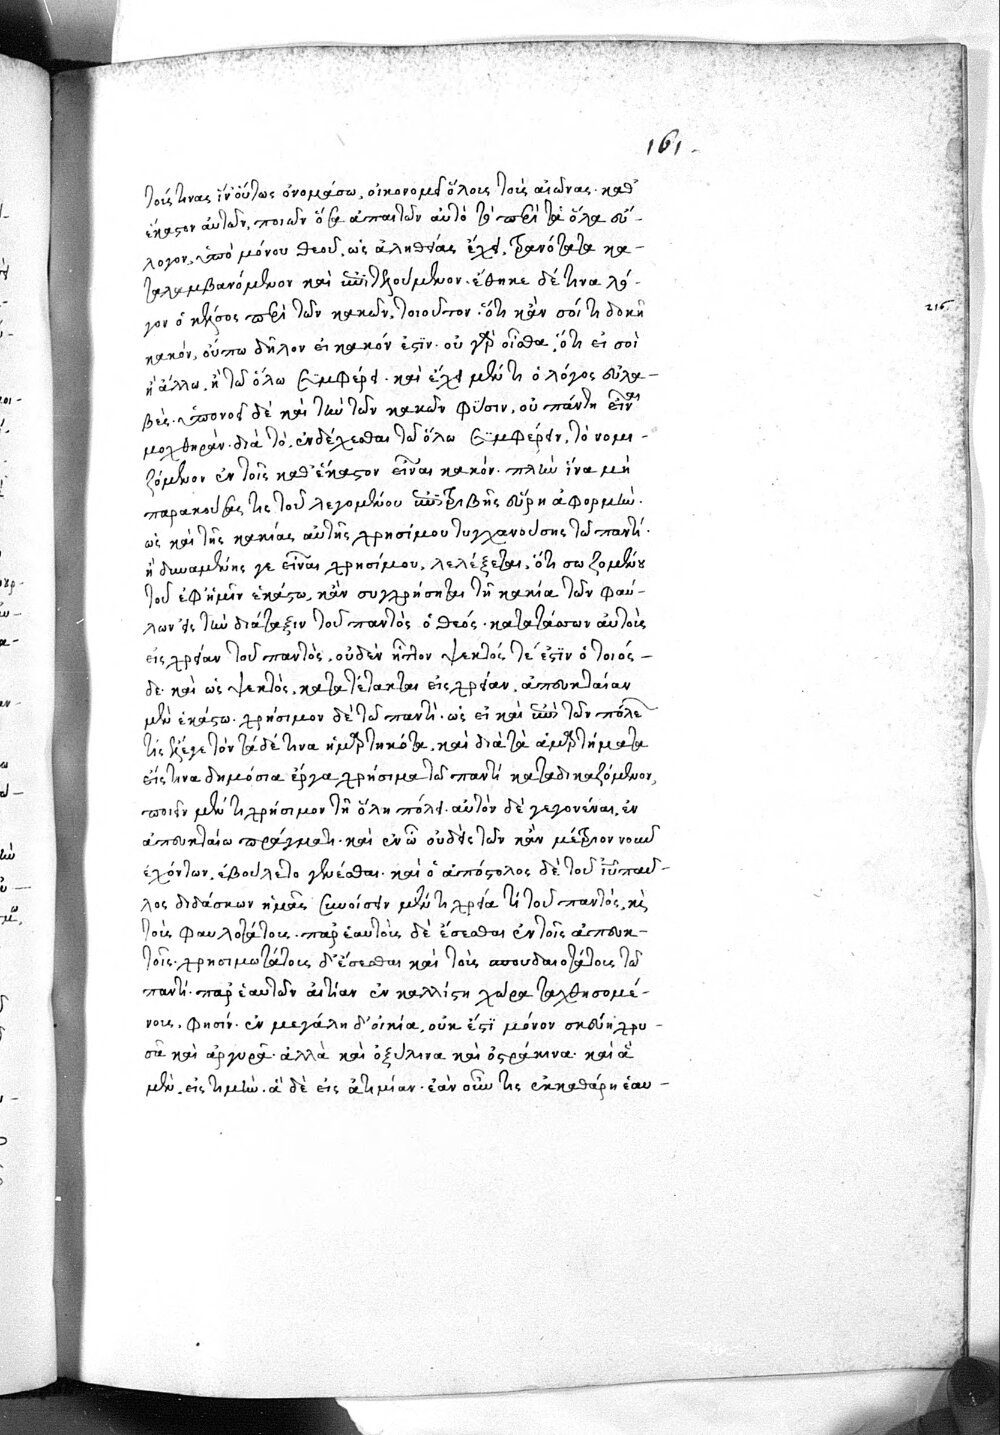 161.
τούς τινας ἵν' οὕτως ὀνομάσω, οἰκονομεῖ ὅλοις τοῖς αἰῶσιν. καθ'
ἕκαστον αὐτῶν, ποιῶν ὅσα ἀπαιτῶν αὐτὸ τὰ περὶ τὰ ὅλα εὔ-
λογον, ὑπὸ μόνου θεοῦ, ὡς ἀληθείας ἔχει, τρανότατα κα-
ταλαμβανόμενον καὶ ἐπιτελούμενον. ἔθηκε δέ τινα λό-
γον ὁ κέλσος περὶ τῶν κακῶν, τοιοῦτον. ὅτι κἄν σοί τι δοκῇ
216
κακόν, οὔπω δῆλον εἰ κακόν ἐστιν. οὐ γὰρ οἶσθα, ὅτι εἰ σοὶ
ἢ ἄλλω, ἢ τῶ ὅλω συμφέρει. καὶ ἔχει μέν τι ὁ λόγος εὐλα-
βές. ὑπονοεῖ δὲ καὶ τὴν τῶν κακῶν φύσιν, οὐ πάντη εἶναι
μοχθηράν. διὰ τὸ, ἐνδέχεσθαι τῶ ὅλω συμφέρειν, τὸ νομι-
ζόμενον ἐν τοῖς καθ' ἕκαστον εἶναι κακόν. πλὴν ἵνα μὴ
παρακούσας τις τοῦ λεγομένου ἐπιτριβῆς εὕρη ἀφορμὴν.
ὡς καὶ τῆς κακίας αὐτῆς χρησίμου τυγχανούσης τῶ παντί.
ἢ δυναμένης γε εἶναι χρησίμου, λελέξεται, ὅτι σωζομένου
τοῦ ἐφ' ἡμῖν ἑκάστω, κἂν συγχρήσηται τῆ κακία τῶν φαύ-
λων εἰς τὴν διάταξιν τοῦ παντὸς ὁ θεός. κατατάσσων αὐτοὺς
εἰς χρείαν τοῦ παντὸς, οὐδὲν ἧττον ψεκτός τέ ἐστιν ὁ τοιόσ-
δε. καὶ ὡς ψεκτὸς, κατατέτακται εἰς χρείαν. ἀπευκταίαν
μὲν ἑκάστω. χρήσιμον δὲ τῶ παντί. ὡς εἰ καὶ ἐπὶ τῶν πόλε
τις ἔλεγε τὸν τάδε τινα ἡμαρτηκότα. καὶ διὰ τὰ ἁμαρτήματα
εἴς τινα δημόσια ἔργα χρήσιμα τῶ παντί καταδικαζόμενον,
ποιεῖν μέν τι χρήσιμον τῆ ὅλη πόλει. αὐτὸν δὲ γεγονέναι, ἐν
ἀπευκταίω πράγματι. καὶ ἐν ὧ οὐδεὶς τῶν κἂν μέτριον νοῦν
ἐχόντων, ἐβούλετο γενέσθαι. καὶ ὁ ἀπόστολος δὲ τοῦ ἰῦ παῦ-
λος διδάσκων ἡμᾶς συνοίσειν μέν τι χρεία τῆ τοῦ παντὸς, κὶ
τοὺς φαυλοτάτους. παρ' ἑαυτοὺς δὲ ἔσεσθαι ἐν τοῖς ἀπευκ-
τοῖς. χρησιμωτάτους δ' ἔσεσθαι καὶ τοὺς σπουδαιοτάτους τῶ
παντί. παρ' ἑαυτῶν αἰτίαν ἐν καλλίστη χώρα ταχθησομέ-
νους. φησίν. ἐν μεγάλη δ' οἰκία, οὐκ ἔστι μόνον σκεύη χρυ-
σᾶ καὶ ἀργυρᾶ. ἀλλὰ καὶ ὀξύλινα καὶ ὀστράκινα. καὶ ἃ
μὲν, εἰς τιμὴν. ἃ δὲ εἰς ἀτιμίαν. ἐὰν οὖν τις ἐκκαθάρη ἑαυ-